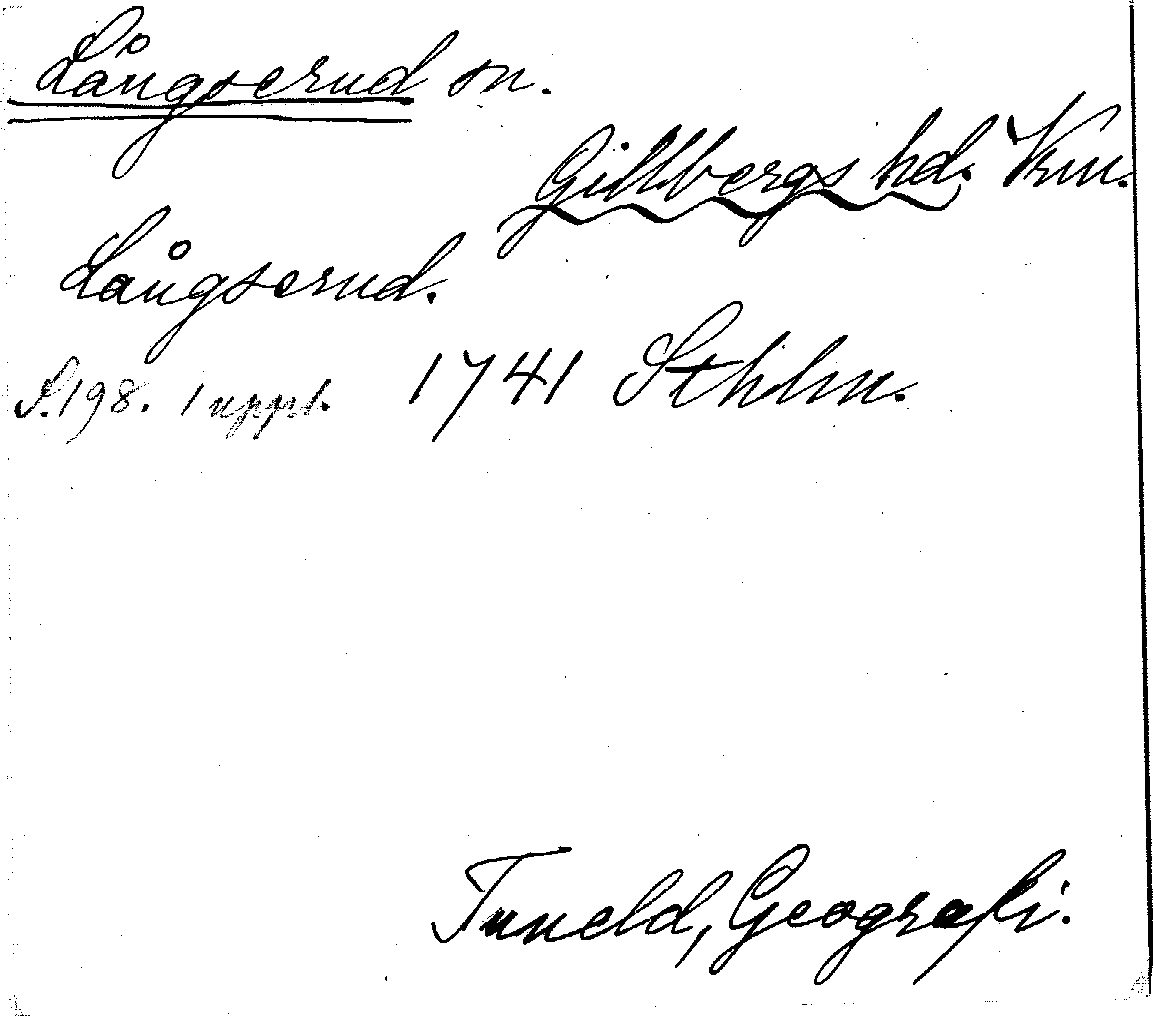 Långserud sn.
Gillbergs hd. Vrm.
Långserud.
S. 198. 1 uppl. 1741 Sthlm.
Tuneld, Geografi.